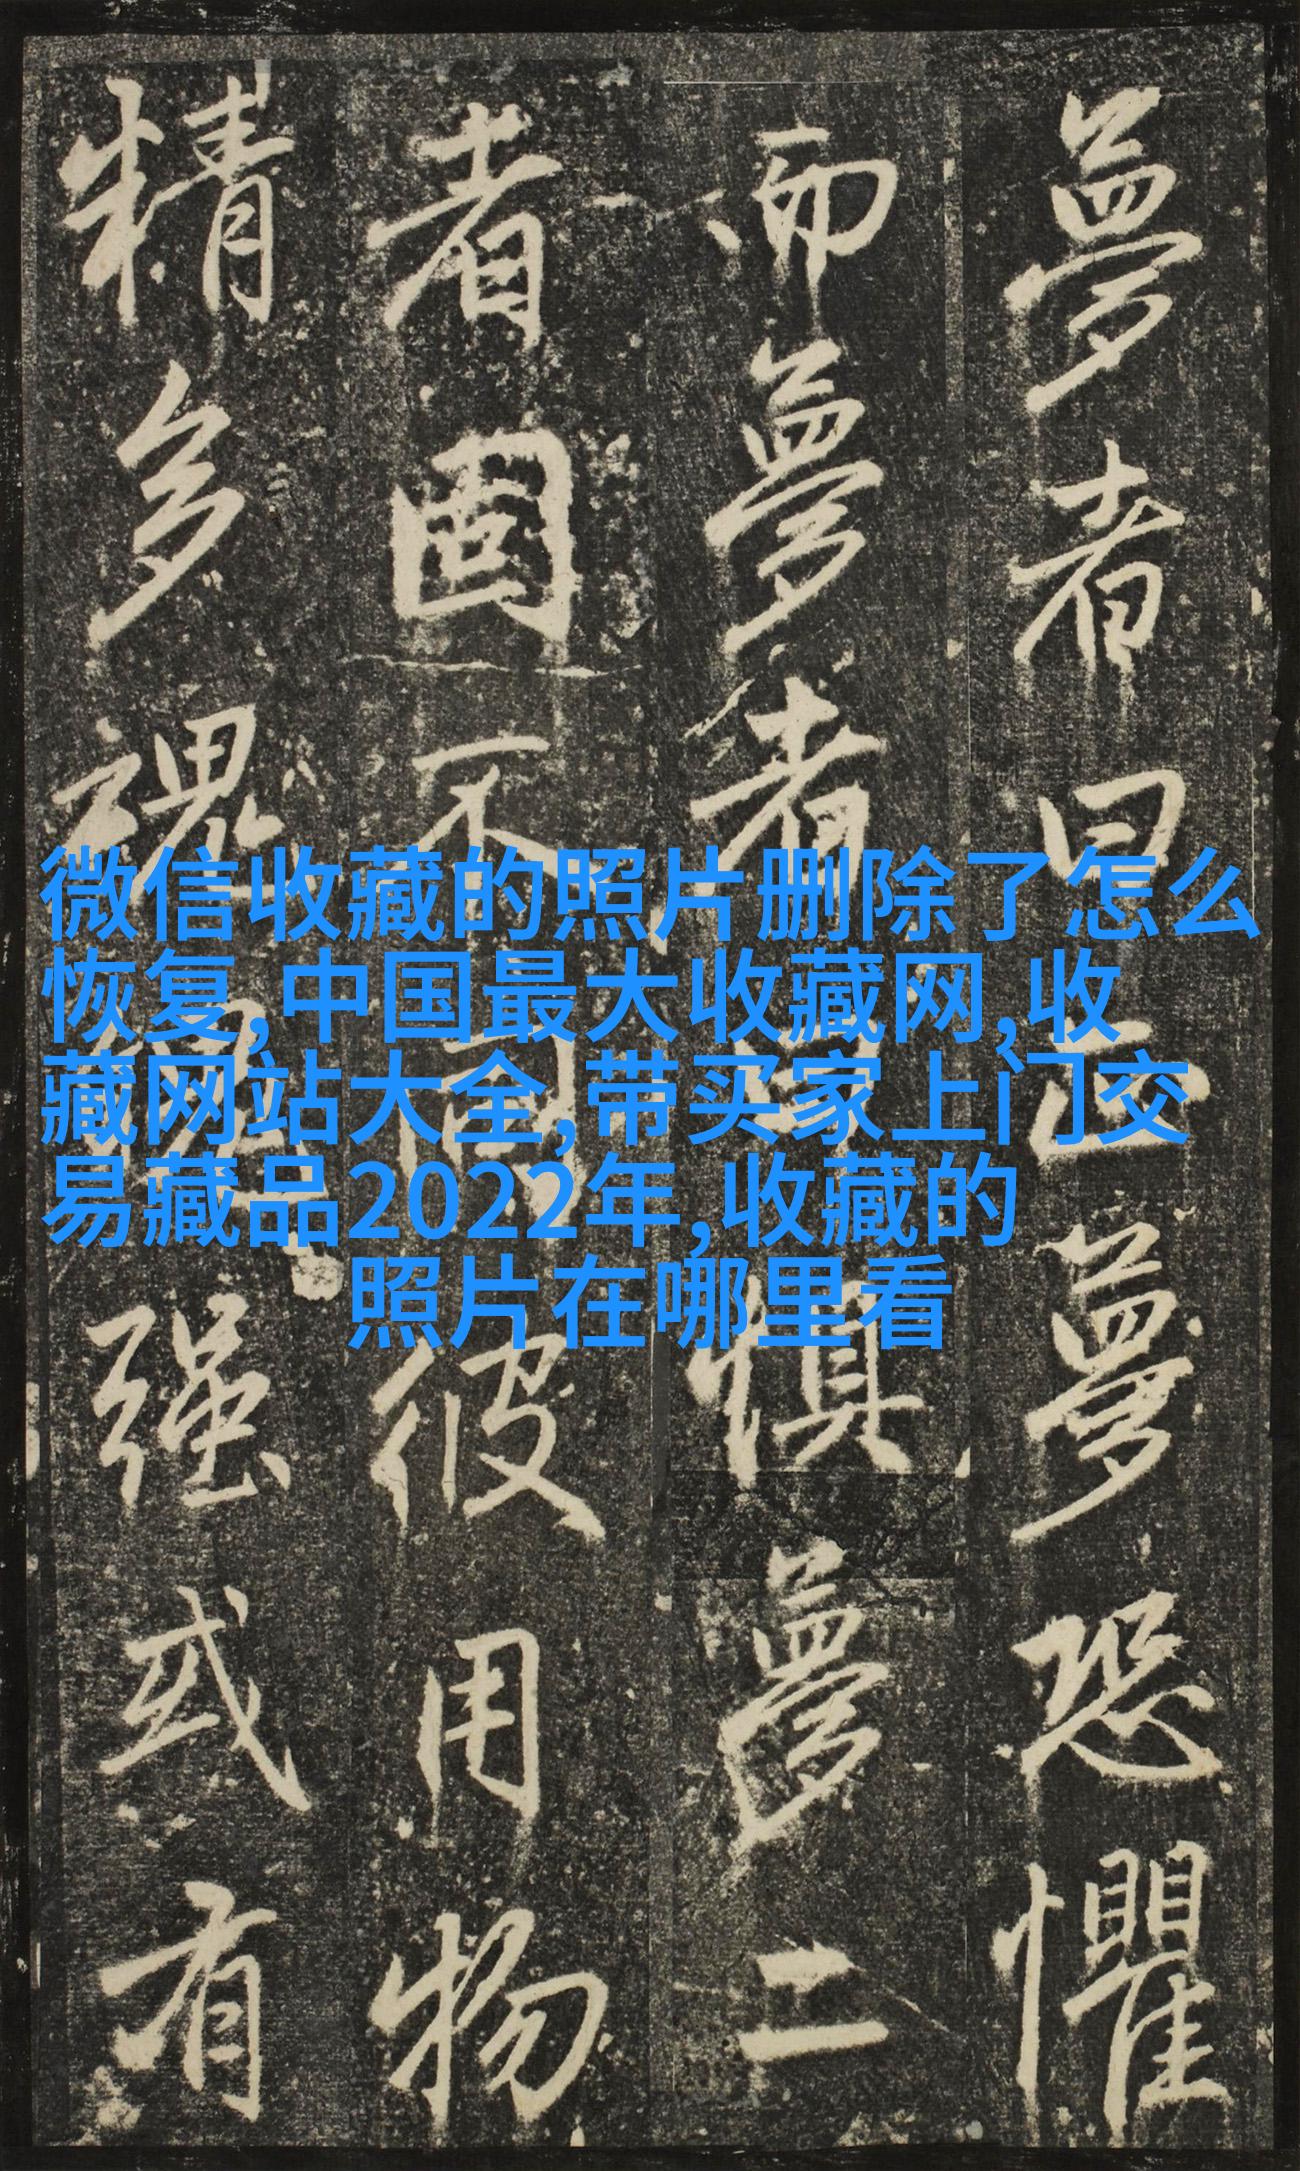 夢者曰夢恐懼
而夢者曰懼夢二
者固不同彼用物
精多魂魄强或有
微信收藏的照片删除了怎么
恢复,中国最大收藏网,收
藏网站大全,带买家上门交
易藏品2022年,收藏的
照片在哪里看